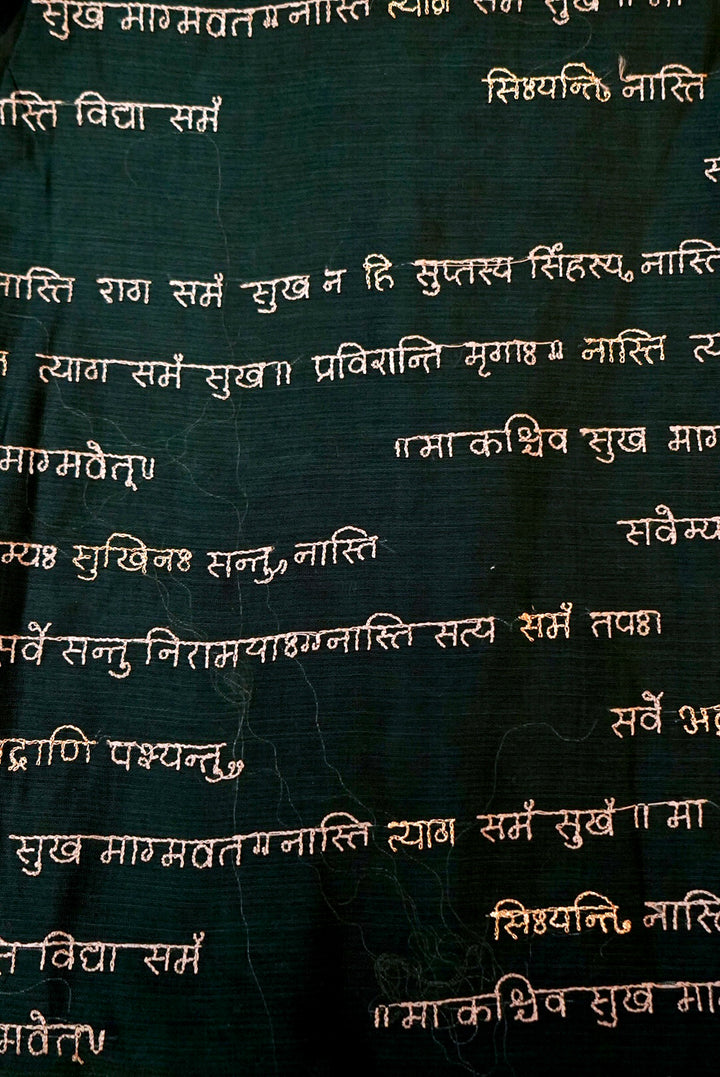 सुख माग्मवत॥नास्ति त्याग समं सुख॥ मा
सिઃयन्ति, नास्ति
नास्ति विद्या समं
नास्ति राग समं सुख न हि सुप्तस्य सिंहस्य, नास्ति
त्याग समं सुख॥ प्रविरान्ति मृगाः॥ नास्ति त्य
माग्मवेत्॥
॥मा कश्चिव सुख माग
सवेम्य
म्यः सुखिनः सन्तु, नास्ति
सर्वे सन्तु निरामयाः॥नास्ति सत्य समं तपः।
सर्वे भद्र
द्राणि पश्यन्तु,
सुख माग्मवत॥नास्ति त्याग समं सुखं॥ मा
सिःयन्ति, नास्ति
विद्या समं
॥मा कश्चिव सुख माग
मवेत्॥